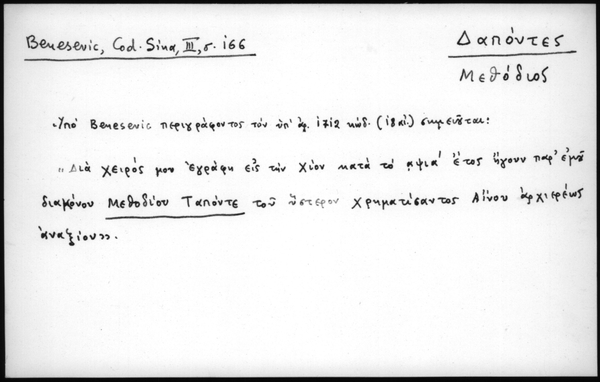 Benesevic, Cod. Sina, III, σ. 166
Δαπόντες
Μεθόδιος
Ὑπό Benesevic περιγράφοντος τόν ὑπ' ἀρ. 1712 κώδ. (18 αἰ.) σημειοῦται:
„Διά χειρός μου ἐγράφη εἰς τήν Χίον κατά τό αψια΄ ἔτος ἤγουν παρ' ἐμοῦ
διακόνου Μεθοδίου Ταπόντε τοῦ ὕστερον χρηματίσαντος Αἴνου ἀρχιερέως
ἀναξίου».